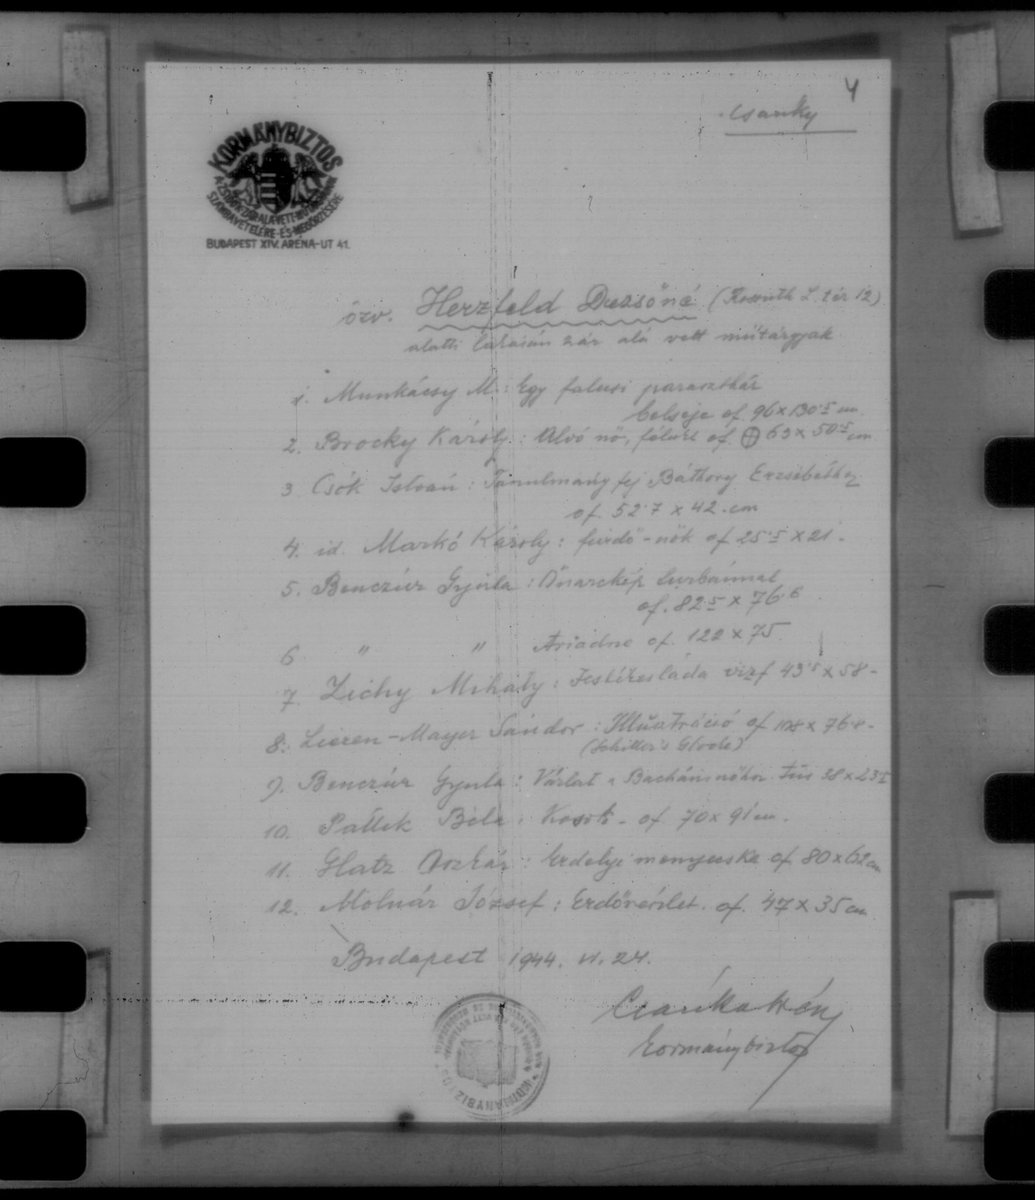 4
Csanky
KORMÁNYBIZTOS
A ZSIDÓK ZÁR ALÁ VETT MŰTÁRGYAINAK
SZÁMBAVÉTELÉRE ÉS MEGŐRZÉSÉRE
BUDAPEST XIV. ARÉNA-UT 41.
özv. Herzfeld Dezsőné (Kossuth L. tér 12)
alatti lakásán zár alá vett műtárgyak
1. Munkácsy M.: Egy falusi parasztház
belseje of 96 x 130.5 cm
2. Brocky Károly: Alvó nő, of. 63 x 50.5 cm
3 Csók István: Tanulmányfej Báthory Erzsébethez
of. 52.7 x 42. cm
4. id. Markó Károly: fürdő-nők of 25.5 x 21.-
5. Benczúr Gyula: Önarckép turbánnal
of. 82.5 x 76.6
6 " " Ariadne of. 122 x 75
7. Zichy Mihály: Festékesláda vizf 43.5 x 58-
8. Liezen-Mayer Sándor: Illustráció of x 76.8-
(Schiller's Glocke)
9. Benczúr Gyula: Vázlat a Bachánsnőhöz 38 x 23.5
10. Pállik Béla: Kosok- of 70 x 91 cm.
11. Glatz Oszkár: Erdélyi menyecske of 80 x 62 cm
12. Molnár József: Erdőrészlet. of. 47 x 35 cm
Budapest 1944. VI. 24.
kormánybiztos
KORMÁNYBIZTOS